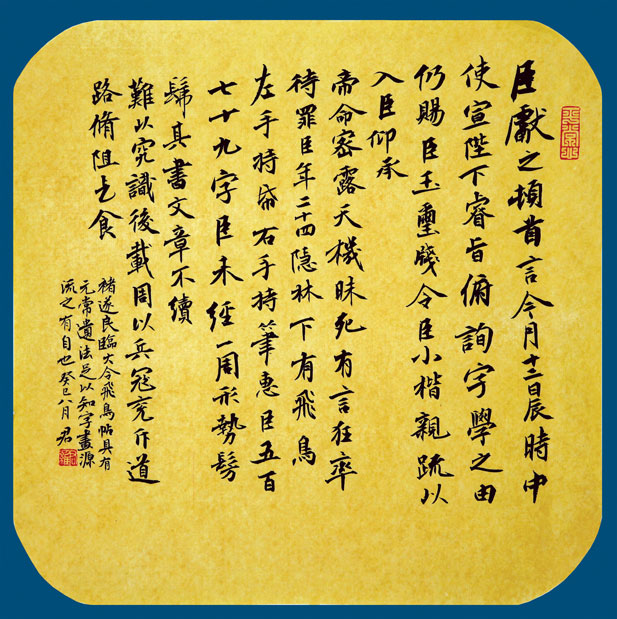 臣獻之頓首言今月十二日辰時中
使宣陛下睿旨俯詢字學之由
仍賜臣玉璽牋令臣小楷親疏以
入臣仰承
帝命密露天機昧死有言狂率
待罪臣年二十四隱林下有飛鳥
左手持帋右手持筆惠臣五百
七十九字臣未經一周形勢髣
髴其書文章不續
難以究識後載周以兵寇充斥道
路脩阻乞食
褚遂良臨大令飛鳥帖具有
元常遺法足以知字畫源
流之有自也癸巳月君